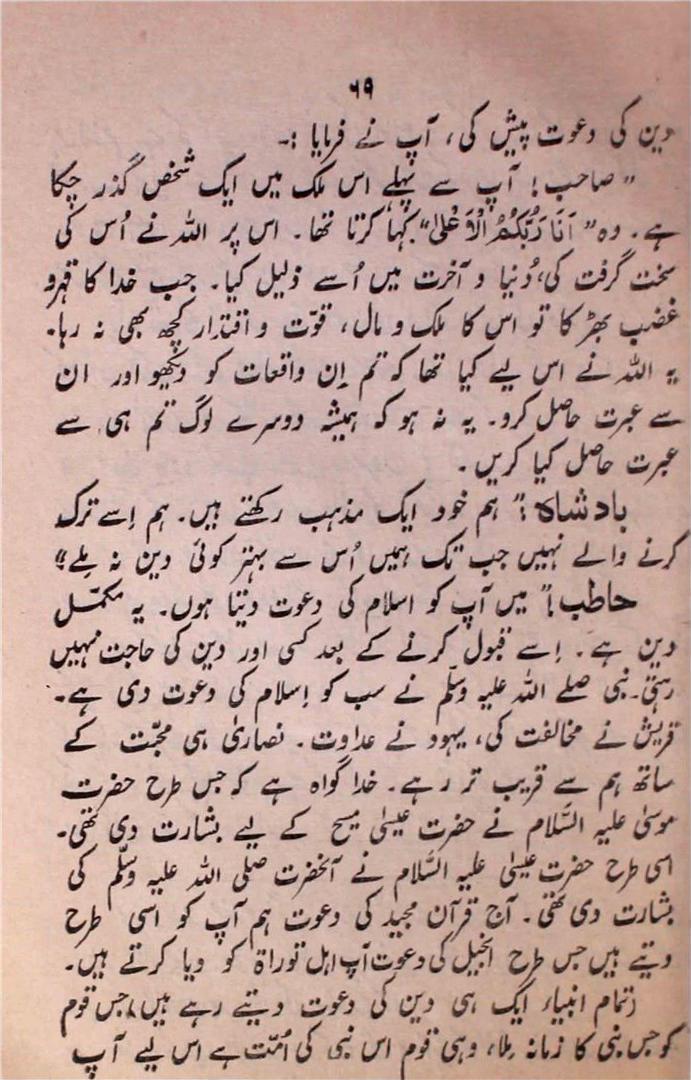 ۶۹
دین کی دعوت پیش کی، آپ نے فرمایا :۔
” صاحب! آپ سے پہلے اس ملک میں ایک شخص گذر چکا
ہے۔ وہ ” اَنَا رَبُّكُمُ الْاَعْلٰی“ کہا کرتا تھا۔ اس پر اللہ نے اُس کی
سخت گرفت کی، دُنیا و آخرت میں اُسے ذلیل کیا۔ جب خدا کا قہر و
غضب بھڑکا تو اس کا ملک و مال، قوّت و اقتدار کچھ بھی نہ رہا۔
یہ اللہ نے اس لیے کیا تھا کہ تم اِن واقعات کو دیکھو اور ان
سے عبرت حاصل کرو۔ یہ نہ ہو کہ ہمیشہ دوسرے لوگ تم ہی سے
عبرت حاصل کیا کریں۔
بادشاہ :” ہم خود ایک مذہب رکھتے ہیں۔ ہم اِسے ترک
کرنے والے نہیں جب تک ہمیں اُس سے بہتر کوئی دین نہ ملے“
حاطب :” میں آپ کو اسلام کی دعوت دیتا ہوں۔ یہ مکمّل
دین ہے۔ اِسے قبول کرنے کے بعد کسی اور دین کی حاجت نہیں
رہتی۔ نبی صلے اللہ علیہ وسلّم نے سب کو اِسلام کی دعوت دی ہے۔
قریش نے مخالفت کی، یہود نے عداوت۔ نصاریٰ ہی محبّت کے
ساتھ ہم سے قریب تر رہے۔ خدا گواہ ہے کہ جس طرح حضرت
موسیٰ علیہ السَّلام نے حضرت عیسیٰ مسیح کے لیے بشارت دی تھی۔
اسی طرح حضرت عیسیٰ علیہ السَّلام نے آنحضرت صلی اللہ علیہ وسلّم کی
بشارت دی تھی۔ آج قرآن مجید کی دعوت ہم آپ کو اسی طرح
دیتے ہیں جس طرح انجیل کی دعوت آپ اہلِ توراۃ کو دیا کرتے ہیں۔
تمام انبیاء ایک ہی دین کی دعوت دیتے رہے ہیں، جس قوم
کو جس نبی کا زمانہ ملا، وہی قوم اس نبی کی اُمّت ہے اس لیے آپ